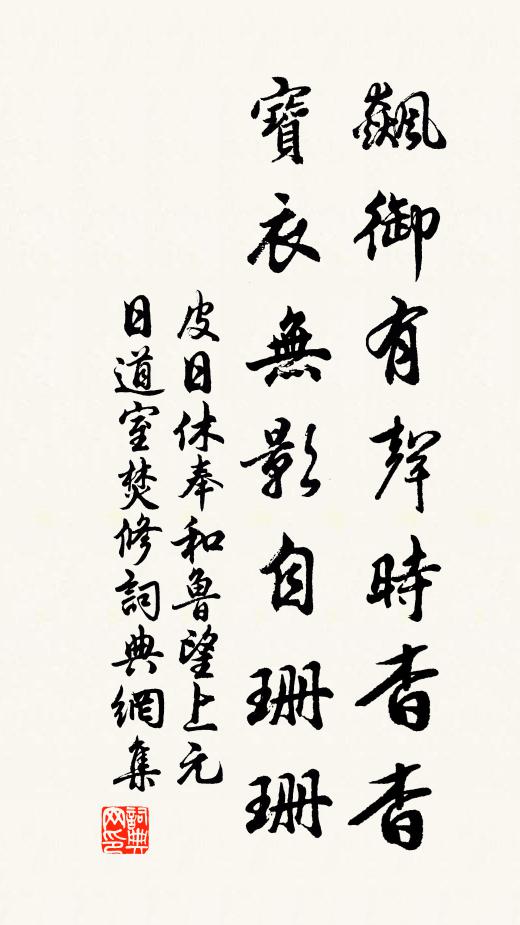 飆御有聲時杳杳
寶衣無影自珊珊
皮日休奉和魯望上元
日道室焚修詞典網集
詞典网印